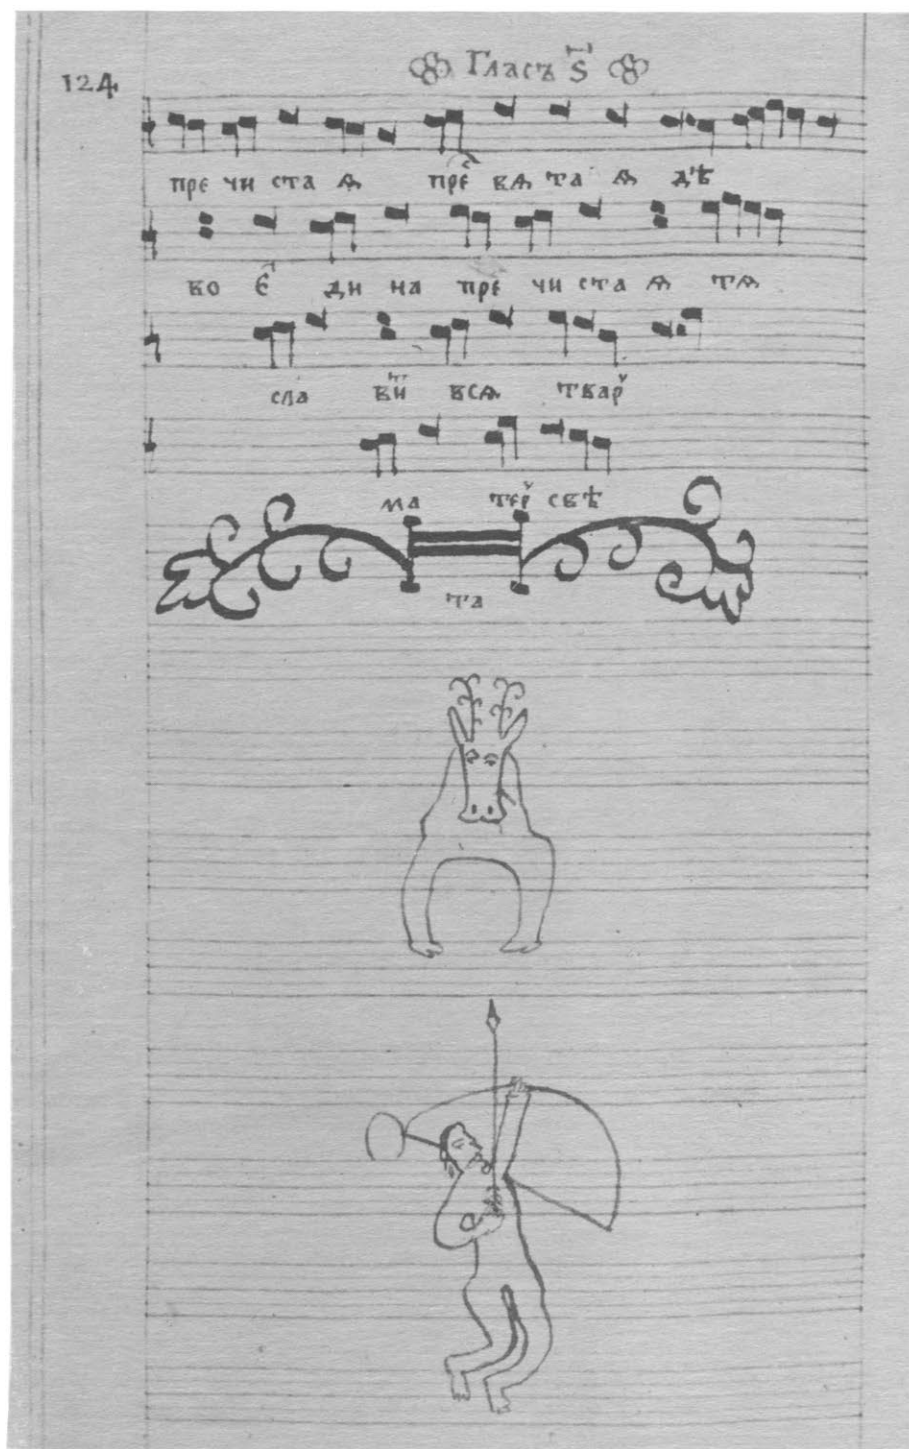 124
Гласъ ѕ҃
пре чи ста ѧ пре вѧ та ѧ дѣ
во є ди на пре чи ста ѧ тѧ
сла ви всѧ твар
ма тер свѣ
та